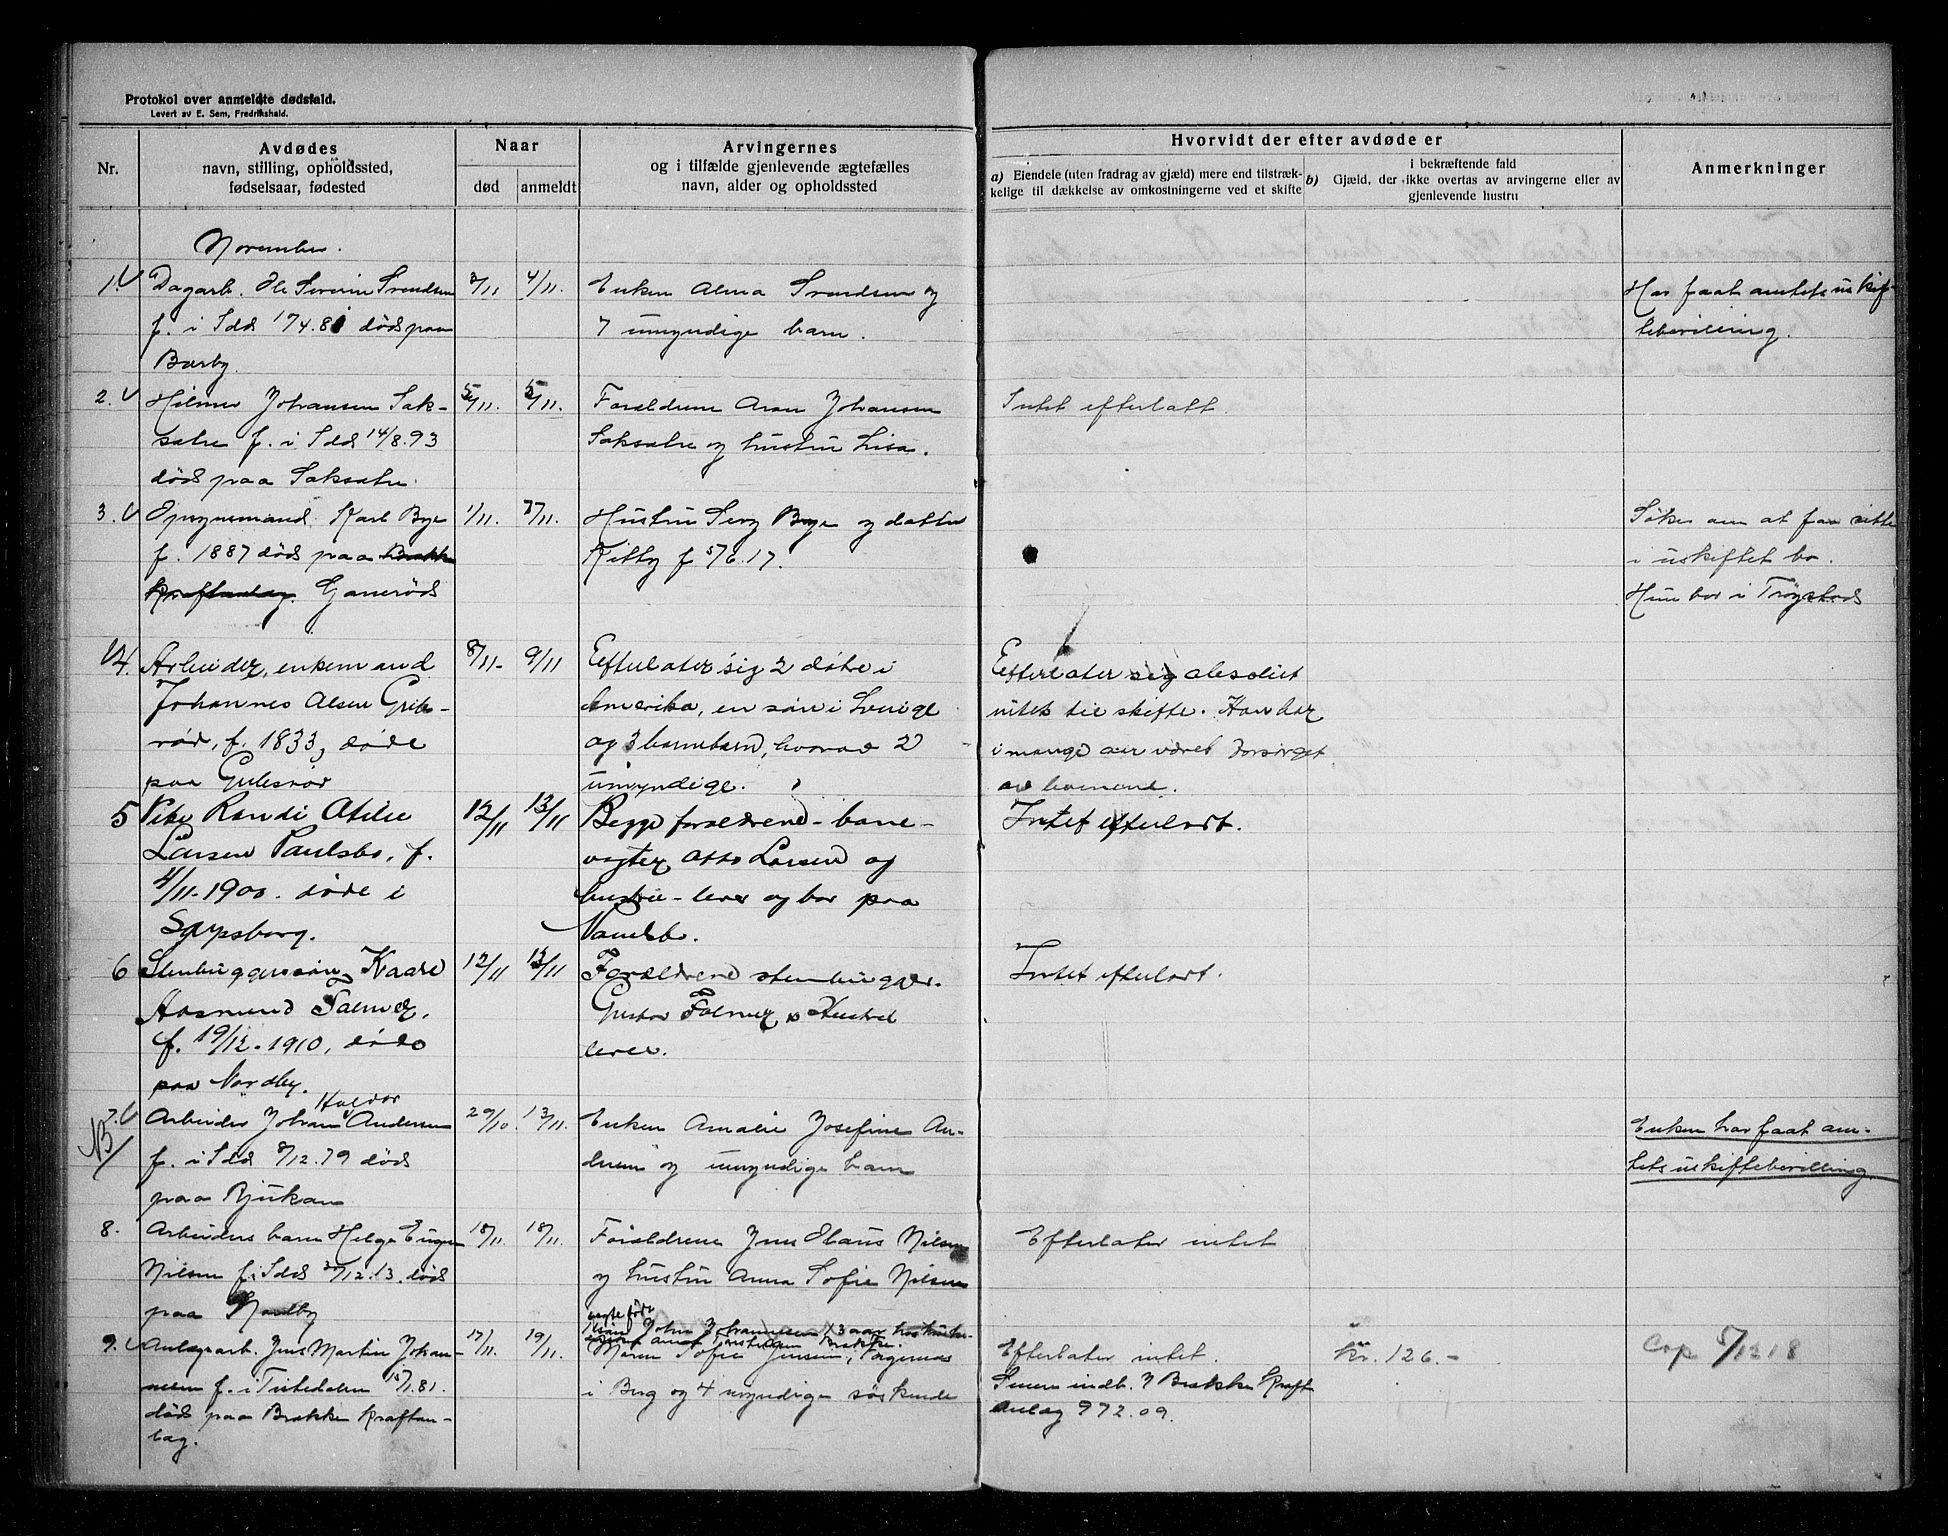 Protokol over anmeldte dødsfald.
Levert av E. Sem, Fredrikshald.
Nr.
Avdødes
navn, stilling, opholdssted,
fødselsaar, fødested
Naar
død
anmeldt
Arvingernes
og i tilfælde gjenlevende ægtefælles
navn, alder og opholdssted
Hvorvidt der efter avdøde er
a) Eiendele (uten fradrag av gjæld) mere end tilstræk-
kelige til dækkelse av omkostningerne ved et skifte
i bekræftende fald
b) Gjæld, der ikke overtas av arvingerne eller av
gjenlevende hustru
Anmerkninger
November.
1. Dagarb. Ole Severin Svendsen
f. i Idd 17/4.81 død paa
Barby.
4/11.
Enken Alma Svendsen og
7 umyndige barn.
Har faat amtets uskif-
tebevilling.
2. Hilmer Johansen Sak-
satre f. i Idd 14/8.93
død paa Saksatre.
5/11.
5/11.
Forældrene Aron Johansen
Saksatre og hustru Lisa.
Intet efterlatt.
3. Opsynsmand Karl Bye
f. 1887 død paa Brekke
Kraftanlæg. Ganerød
1/11.
7/11.
Hustru Bye og datter
Kitty f 5/6.17.
Søker om at faa sitte
i uskiftet bo.
Hun bor i Trøgstad
4. Arbeider, enkemand
Johannes Olsen Grib-
rød, f. 1833, døde
paa
8/11.
9/11
Efterlater sig 2 døtre i
Amerika, en søn i Sverige
og 3 barnebarn, hvorav 2
umyndige.
Efterlater sig absolut
intet til skifte. Han har
i mange aar været forsørget
av
5 Pike Randi Otilie
Larsen Paulsbo, f.
4/11-1900. døde i
Sarpsborg.
12/11
13/11
Begge forældrene - bane-
vogter Otto Larsen og
hustru - lever og bor paa
Paulsbo.
Intet efterlatt.
6 Stenhuggersøn Kaare
Aasmund Falmer,
f. 19/12-1910, døde
paa Nordby.
12/11
13/11
Forældrene stenhugger
Gustav Falmer og Hustru
lever.
Intet efterlatt.
7. NB
Haldor
Arbeider Johan Andersen
f. i Idd 8/12.79 død
paa Rjukan
29/10.
13/11.
Enken Amalie Josefine An-
dersen og umyndige barn
Enken har faat am-
tets uskiftebevilling
8. Arbeiders barn Helge Eugen
Nilsen f. i Idd 20/12.13. død
paa Nordby
18/11.
18/11.
Forældrene Jens Nilsen
og hustru Anna Sofie Nilsen
Efterlater intet
9. Anlægsarb. Jens Martin Johan-
nesen f. i Tistedalen 15/1.81.
død paa Brekke Kraftan-
læg.
17/11.
19/11.
John Johannesen
Maren Sofie Jensen,
i Berg og 4 myndige søskende
Efterlater intet.
Senere indb. Brekke Kraft
anlæg 972.09.
Kr. 126.-
Cop 5/12 18